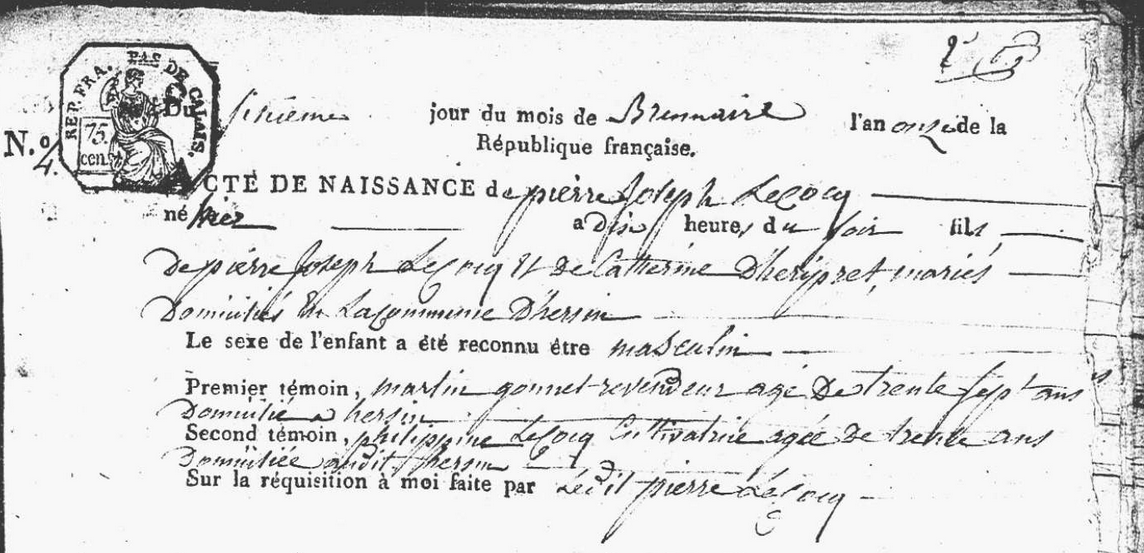 REP. FRA. PAS DE CALAIS.
75 cen.
N.o 4.
Du sixieme jour du mois de Brumaire l'an onze de la
République française.
ACTE DE NAISSANCE de pierre Joseph LeCocq
né hier a dix heures du soir fils
De pierre Joseph LeCocq Et de Catherine Dhéripret, mariés
Domiciliés En La Commune D'hersin
Le sexe de l'enfant a été reconnu être masculin
Premier témoin, martin gonnet revendeur agé De trente Sept ans
Domicilié a hersin
Second témoin, philippine LeCocq Cultivatrice agée de trente ans
Domiciliée audit hersin
Sur la réquisition à moi faite par Ledit pierre LeCocq